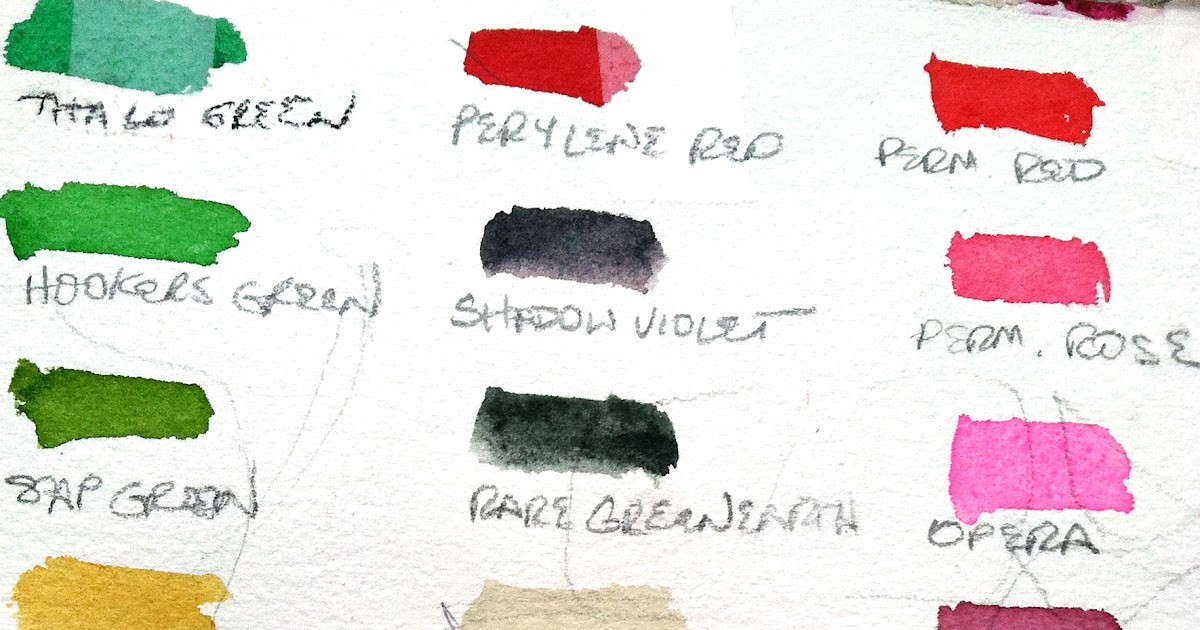 THALO GREEN
PERYLENE RED
PERM. RED
HOOKERS GREEN
SHADOW VIOLET
PERM. ROSE
SAP GREEN
RARE GREEN EARTH
OPERA